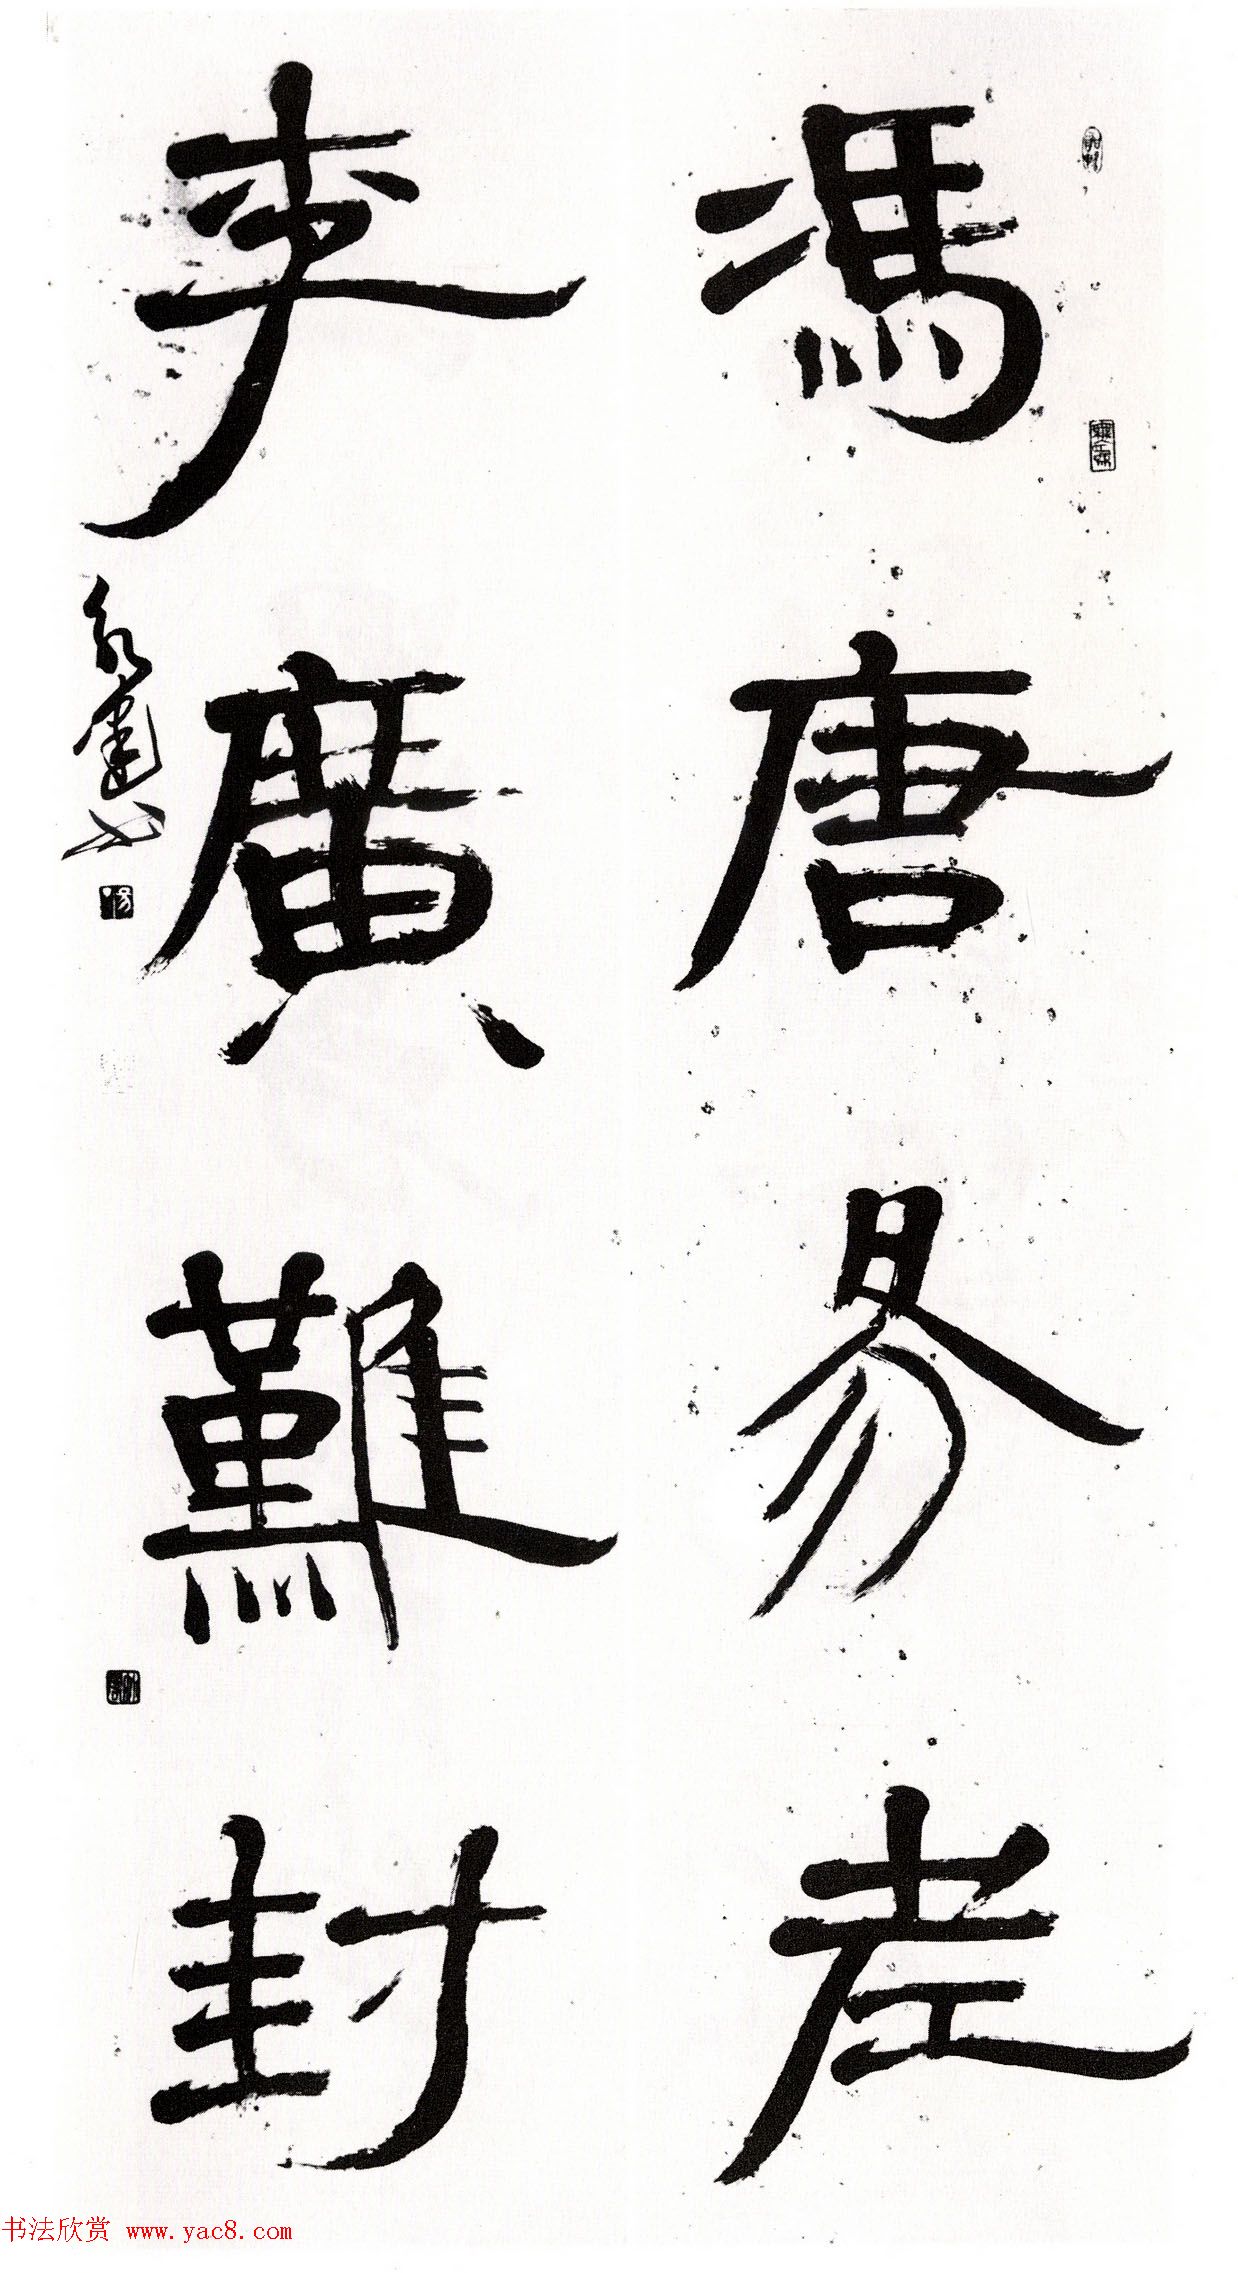 馮唐易老
李廣難封
书法欣赏 www.yac8.com